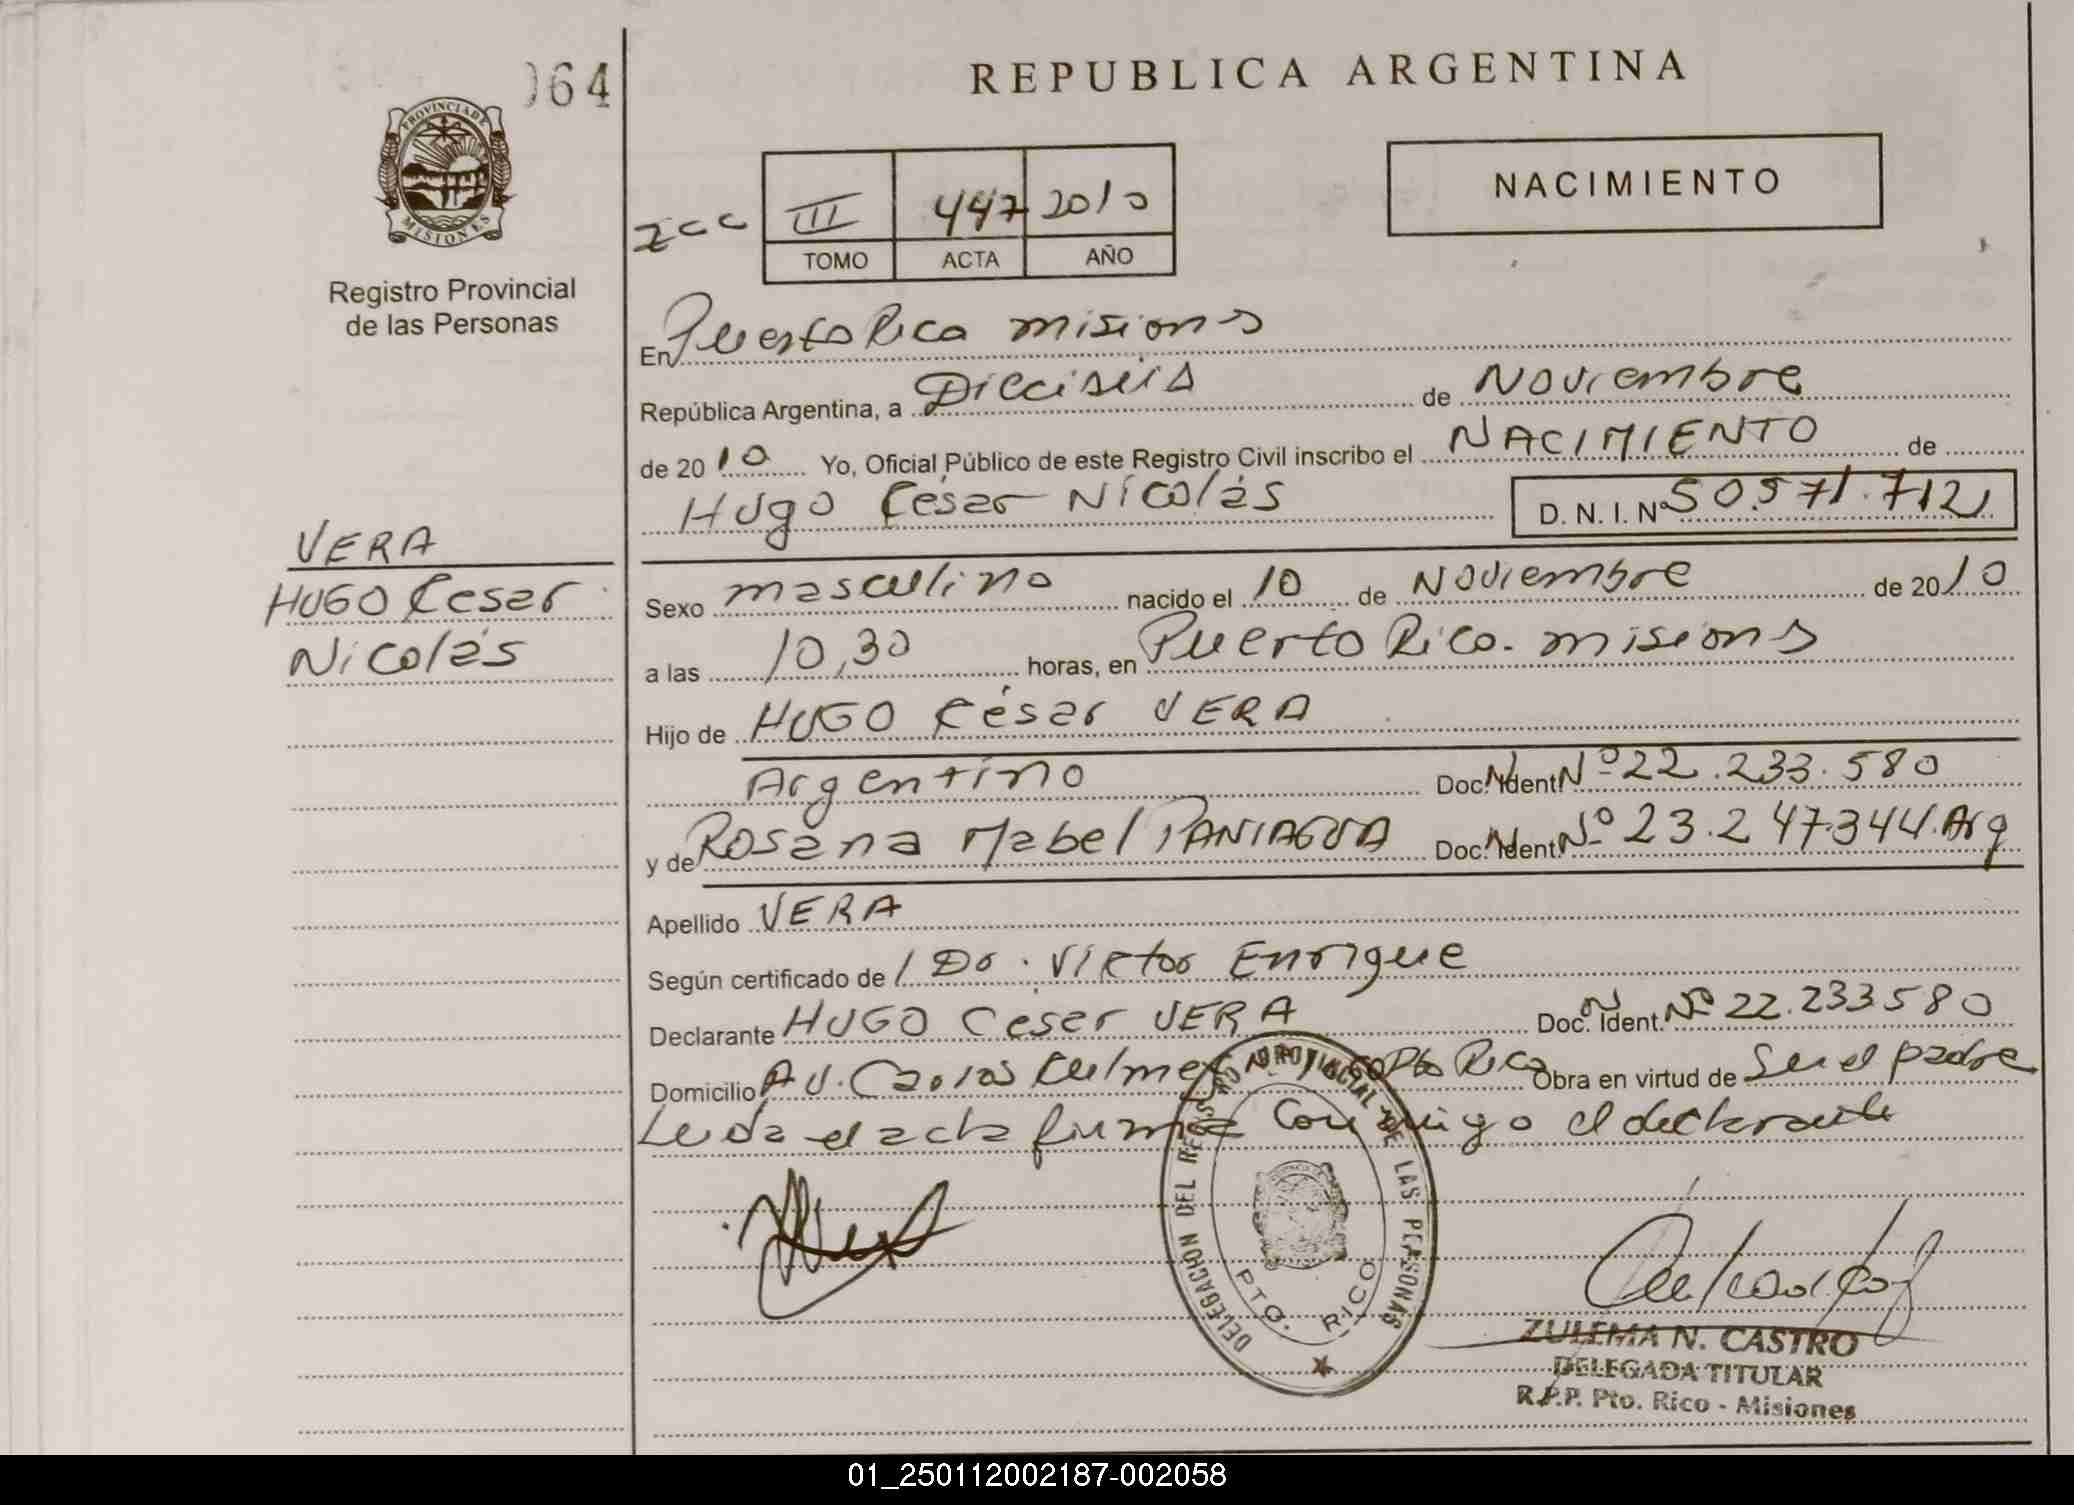 064
REPUBLICA ARGENTINA
PROVINCIA DE
MISIONES
Registro Provincial
de las Personas
NACIMIENTO
III 447 2010
TOMO ACTA AÑO
En Puerto Rica misions
República Argentina, a Dieciséis de Noviembre
de 2010 Yo, Oficial Público de este Registro Civil inscribo el NACIMIENTO de
Hugo César Nicolás D. N. I. Nº 50.571.712
VERA
HUGO César
Nicolás
Sexo masculino nacido el 10 de Noviembre de 2010
a las 10,30 horas, en Puerto Rico. misions
Hijo de HUGO César VERA
Argentino Doc. N. Ident. Nº 22.233.580
y de Rosana Mabel PANIAGUA Doc. N. Ident. Nº 23.247.344. Arg
Apellido VERA
Según certificado de / Dr. Víctor Enrique
Declarante HUGO César VERA Doc. N. Ident. Nº 22.233580
Domicilio AV. Carlos Culmey Pto Rico Obra en virtud de Ser el padre
Leída el acta firma conmigo el declarante
DELEGACION DEL REGISTRO PROVINCIAL DE LAS PERSONAS
PTO. RICO
ZULEMA N. CASTRO
DELEGADA TITULAR
R.P.P. Pto. Rico - Misiones
01_250112002187-002058